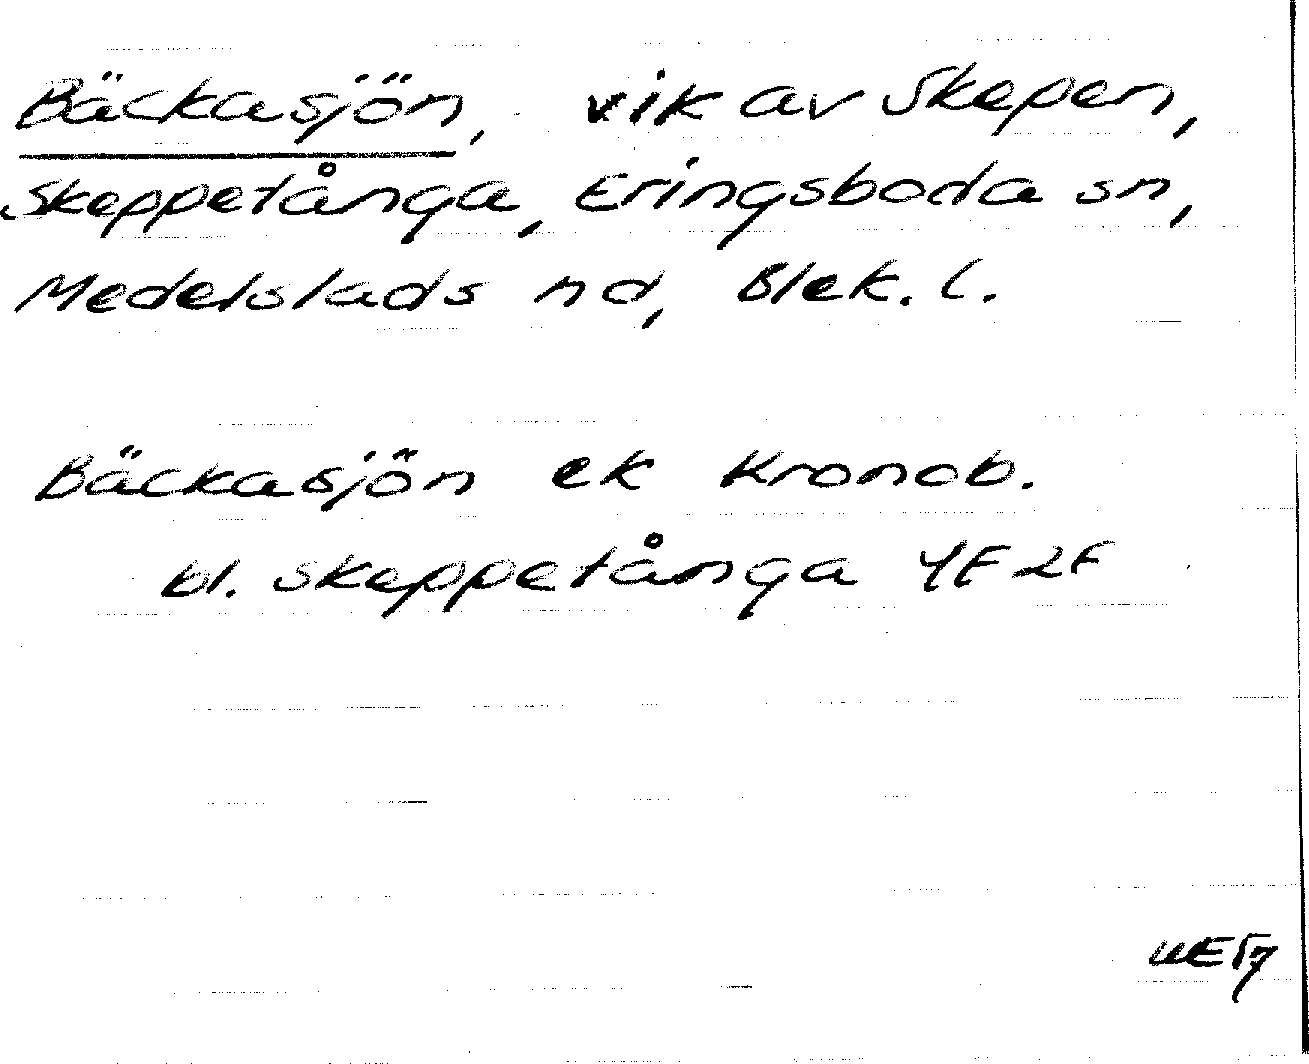 Bäckasjön, vik av Skepen,
Skeppetånga, Eringsboda sn,
Medelstads hd, Blek. l.
Bäckasjön ek Kronob.
bl. Skeppetånga 4F 2F